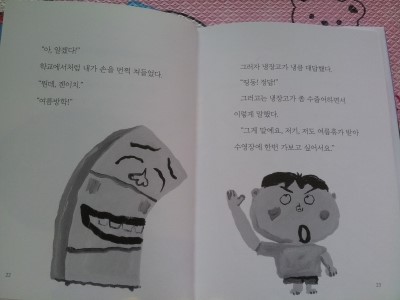 "아, 알겠다!"
학교에서처럼 내가 손을 번쩍 쳐들었다.
"뭔데, 겐이치."
"여름방학!"
22
그러자 냉장고가 냉큼 대답했다.
"딩동! 정답!"
그러고는 냉장고가 좀 수줍어하면서
이렇게 말했다.
"그게 말예요, 저기, 저도 여름휴가 받아
수영장에 한번 가보고 싶어서요."
23